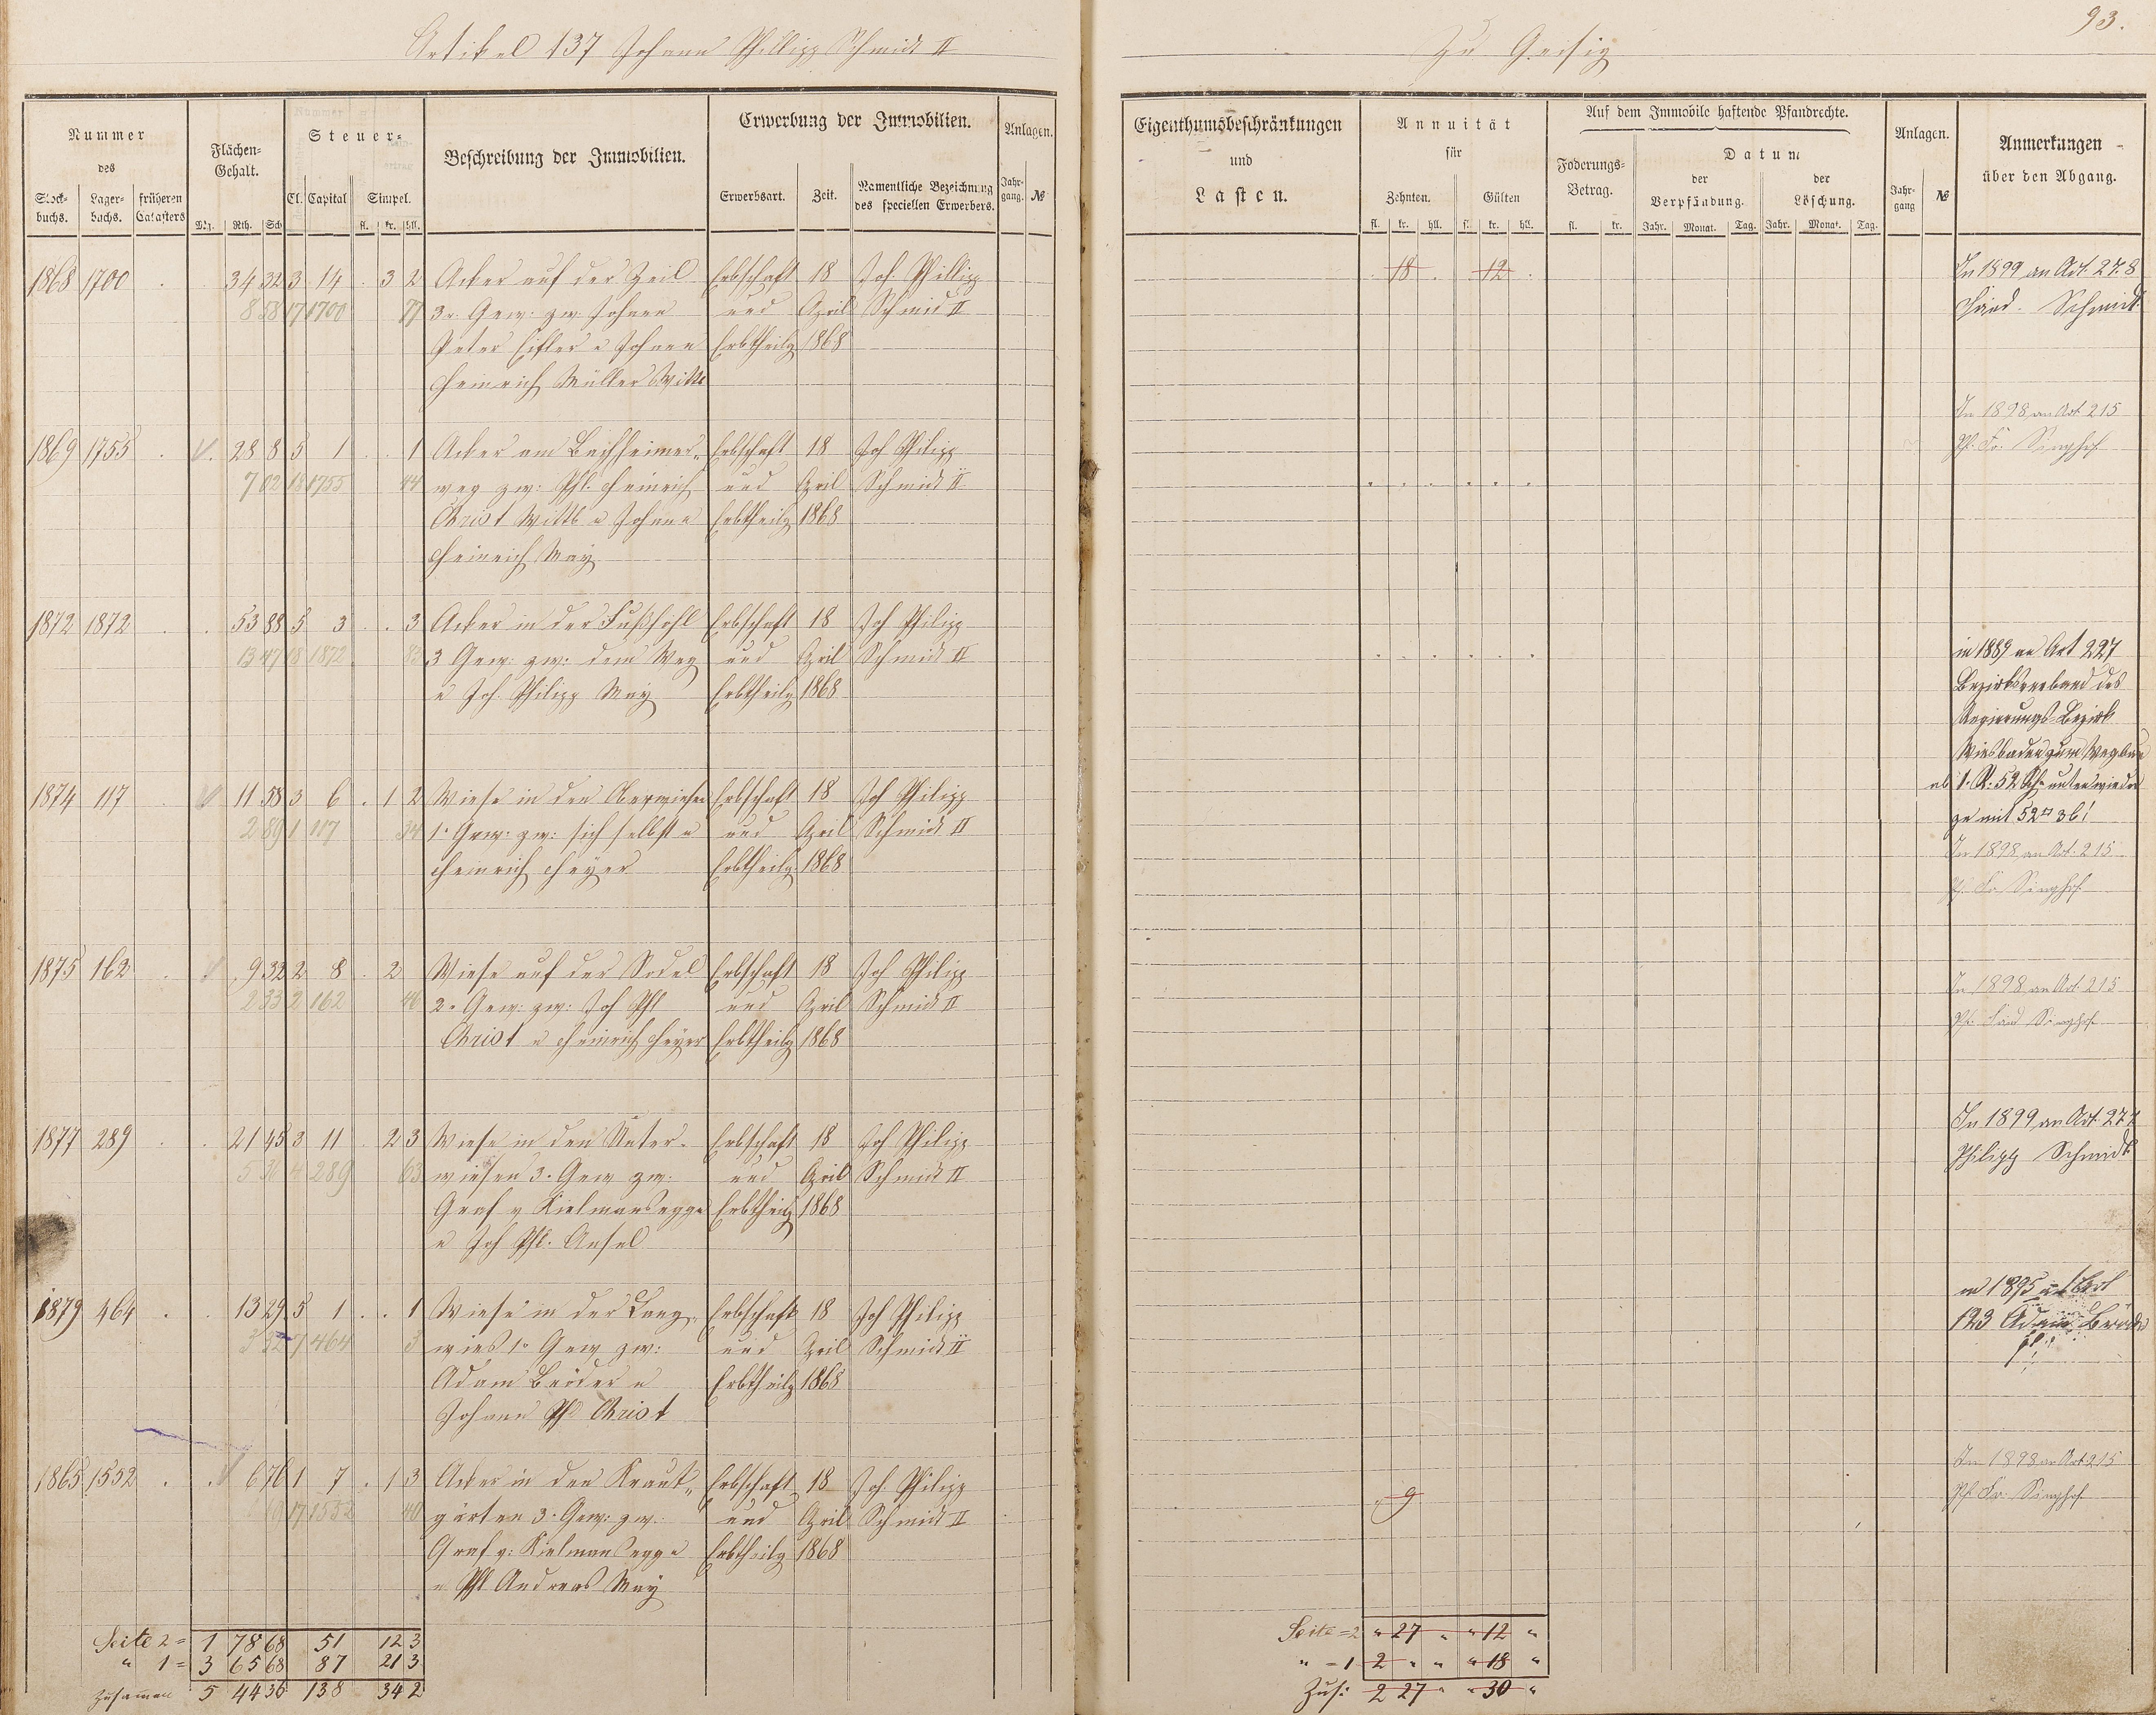 Artikel 137 Johann Phillipp Schmidt II
Zu Geisig
93.
Nummer
des
Stock-
buchs.
Lager-
buchs.
früheren
Catasters
Flächen-
Gehalt.
Mg. Rth. Sch
Steuer-
Cl. Capital Simpel.
fl. kr. hll.
Beschreibung der Immobilien.
Erwerbung der Immobilien.
Erwerbsart. Zeit.
Namentliche Bezeichnung
des speciellen Erwerbers.
Anlagen.
Jahr-
gang.
№
Eigenthumsbeschränkungen
und
Lasten.
Annuität
für
Zehnten. Gülten
fl. kr. hll. fl. kr. hll.
Auf dem Immobile haftende Pfandrechte.
Foderungs-
Betrag.
fl. kr.
Datum
der
Verpfändung.
der
Löschung.
Jahr. Monat. Tag. Jahr. Monat. Tag.
Anlagen.
Jahr-
gang
№
Anmerkungen
über den Abgang.
1868 1700 . . 34 32 3 14 . 3 2 Acker auf der Zeil Erbschaft 18 Joh. Phillipp
8 58 17 1700 77 3r. Gew: zw. Johann und April Schmid II
Peter Eisler u Johann Erbtheilg 1868
Heinrich Müller Wittb
18 . 12 .
In 1899 an Art. 278
Schmidt
1869 1755 . 28 8 5 1 . . 1 Acker am Bachheimer- Erbschaft 18 Joh Philipp
7 02 18 1755 44 weg zw: Phl. Heinrich und April Schmidt II
Christ Wittb u Johann Erbtheilg 1868
Heinrich May
In 1898 an Art 215
Singhof
1872 1872 . . 53 88 5 3 . . 3 Acker in der Fußhohl Erbschaft 18 Joh Philipp
13 47 18 1872 83 3 Gew: zw: dem Weg und April Schmidt II
u Joh. Philipp May Erbtheilg 1868
in 1889 an Art 227
Bezirksverband des
Regierungs-Bezirk
Wiesbaden zum Wegbau
ab 1. R: 52 Sch: unten wieder
zu mit 52 36!
1874 117 . 11 58 3 6 . 1 2 Wiese in den Oberwiesen Erbschaft 18 Joh Philipp
2 89 1 117 34 1. Gew: zw: sich selbst u und April Schmidt II
Heinrich Heyer Erbtheilg. 1868
In 1898 an Art. 215
Singhof
1875 162 . 9 32 2 8 . 2 Wiese auf der Sodel Erbschaft 18 Joh Philipp
2 33 2 162 46 2. Gew: zw: Joh Phl und April Schmidt II
Christ u Heinrich Heyer Erbtheilg 1868
In 1898 an Art 215
Singhof
1877 289 . . 21 45 3 11 . 2 3 Wiese in den Unter- Erbschaft 18 Joh Philipp
5 36 4 289 63 wiesen 3. Gew zw. und April Schmidt II
Graf v Kielmansegge Erbtheilg 1868
u Joh Phl. Ansel
In 1899 an Art. 277
Philipp Schmidt
1879 464 . . 13 29 5 1 . . 1 Wiese in der Lang- Erbschaft 18 Joh Philipp
3 32 7 464 3 wies 1. Gew zw: und April Schmidt II
Adam Bröder u Erbtheilg 1868
Johann Phl Christ
in 1895 Art
123 Adam Bröder
1865 1532 . . 6 76 1 7 . 1 3 Acker in den Kraut- Erbschaft 18 Joh. Philipp
1 69 17 1532 40 gärten 3. Gew: zw: und April Schmidt II
Graf v: Kielmansegge Erbtheilg 1868
u Phl Andreas May
9
In 1898 an Art 215
Singhof
Seite 2 = 1 78 68 51 12 3
" 1 = 3 65 68 87 21 3
Zusammen 5 44 36 138 34 2
Seite = 2 " 27 " " 12 "
" - 1 2 " " " 18 "
Zus: 2 27 " " 30 "